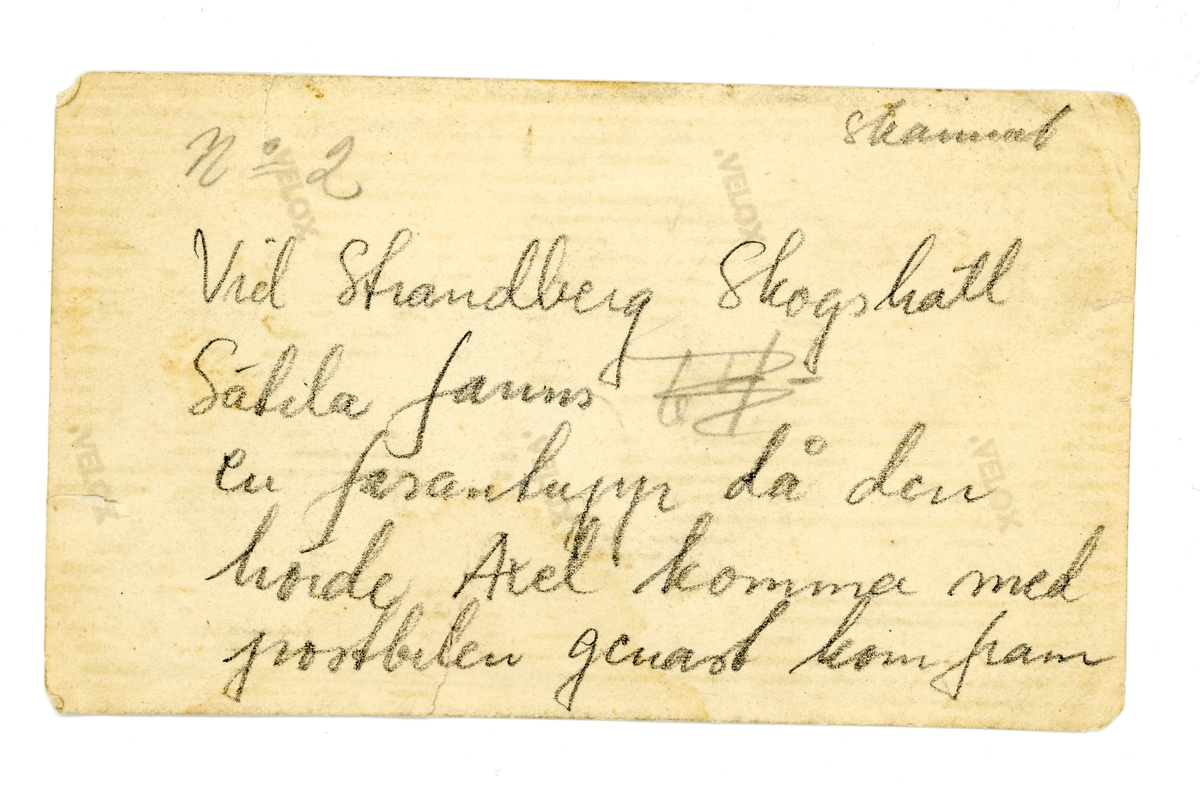 skannat
No 2
Vid Strandberg Skogshåll
Sätila fanns
en fasantupp då den
hörde Axel komma med
postbilen genast kom fram
VELOX
VELOX
VELOX
VELOX
VELOX